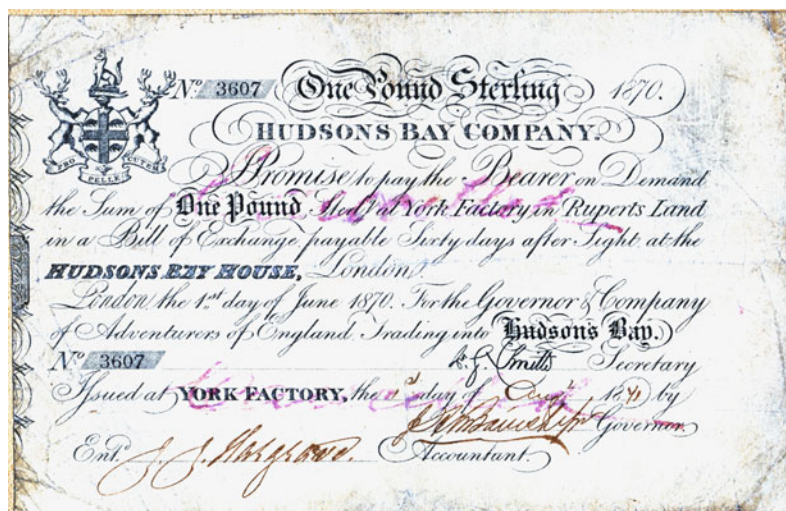 No. 3607 One Pound Sterling 1870.
HUDSONS BAY COMPANY.
PRO PELLE CUTEM
I Promise to pay the Bearer on Demand
the Sum of One Pound Sterl.g at York Factory in Ruperts Land
in a Bill of Exchange payable Sixty days after Sight at the
HUDSONS BAY HOUSE, London.
London the 1st day of June 1870. For the Governor & Company
of Adventurers of England Trading into Hudson's Bay.
No. 3607 Smith Secretary
Issued at YORK FACTORY, the 1st day of Augt 1870 by
Governor
Entd. J. J. Hargrave. Accountant.